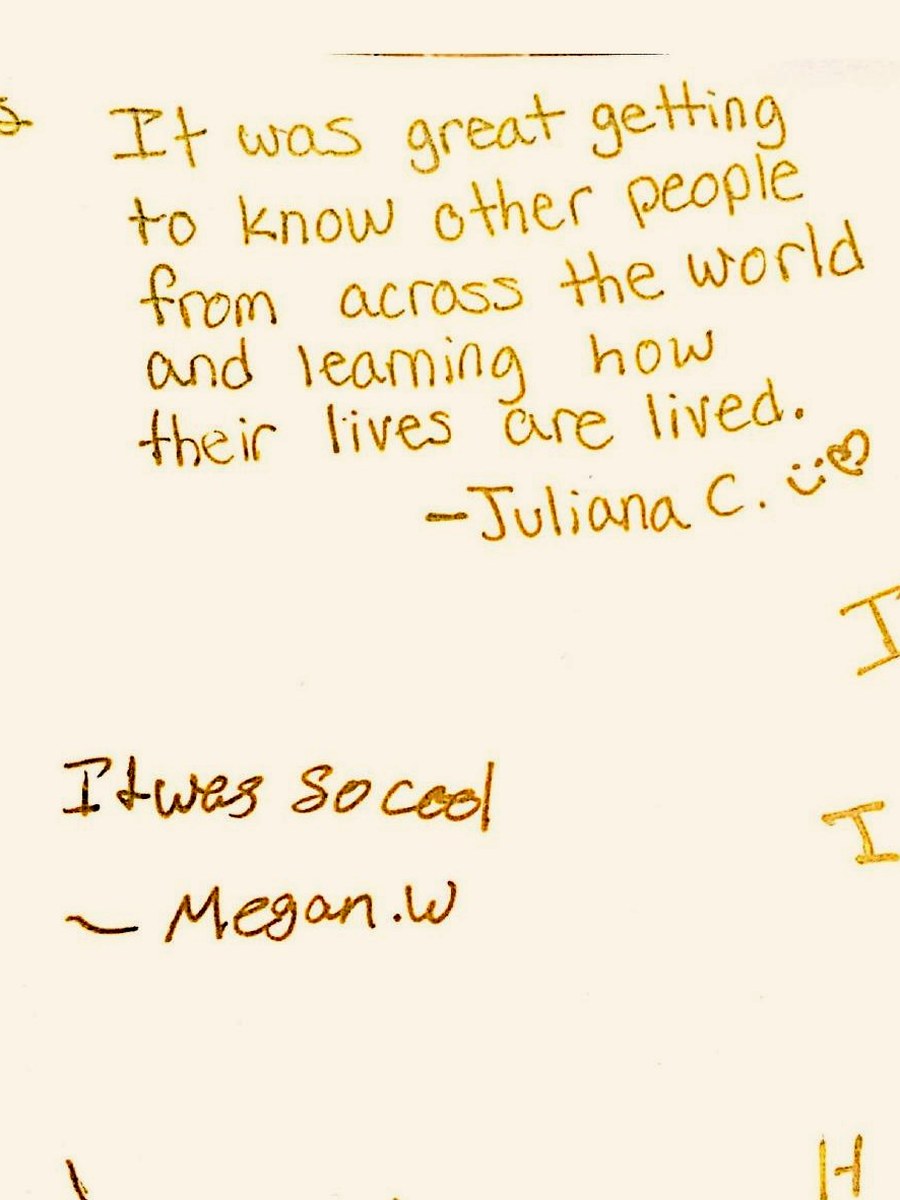 It was great getting
to know other people
from across the world
and learning how
their lives are lived.
-Juliana C. :)♡
It was so cool
~ Megan.W
I
I
H